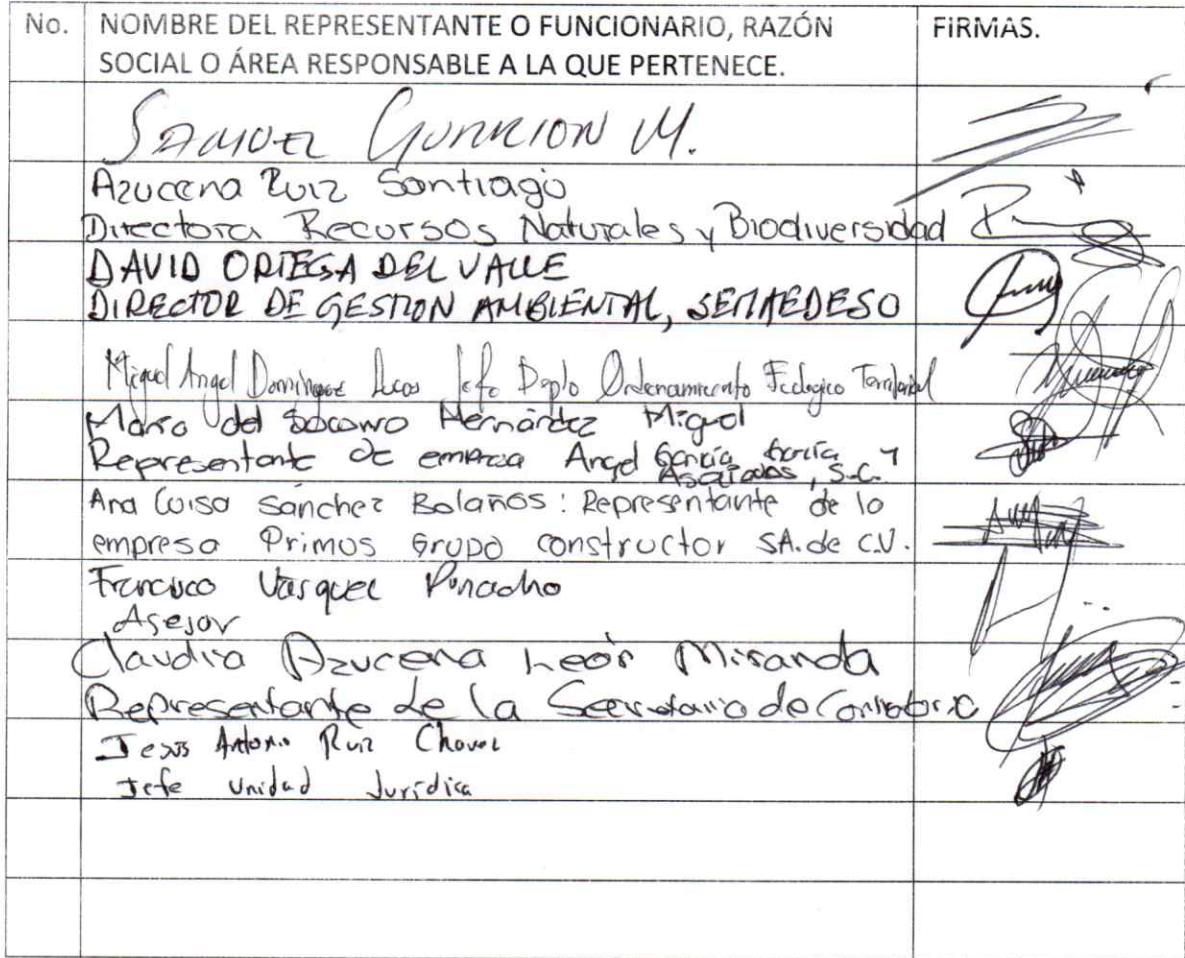 No. NOMBRE DEL REPRESENTANTE O FUNCIONARIO, RAZÓN FIRMAS.
SOCIAL O ÁREA RESPONSABLE A LA QUE PERTENECE.
SAMUEL GURRION M.
Azucena Ruiz Santiago
Directora Recursos Naturales y Biodiversidad
DAVID ORTEGA DEL VALLE
DIRECTOR DE GESTION AMBIENTAL, SEMAEDESO
Miguel Angel Domínguez Lucas Jefe Depto Ordenamiento Ecologico Territorial
María del Socorro Hernández Miguel
Representante de empresa Angel García García y
Asociados, S.C.
Ana Luisa Sánchez Bolaños: Representante de la
empresa Primus Grupo constructor SA. de C.V.
Francisco Vásquez Pinacho
Asesor
Claudia Azucena León Miranda
Representante de la Secretaria de Contraloria
Jesus Antonio Ruiz Chavez
Jefe Unidad Jurídica